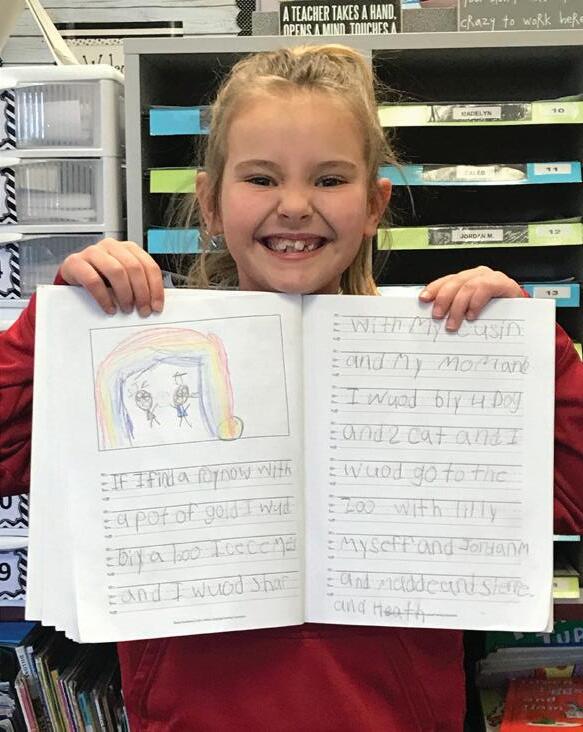 A TEACHER TAKES A HAND,
OPENS A MIND, TOUCHES A
crazy to work here
MADELYN
10
CALEB
11
JORDAN M.
12
13
9
If I find a roynow with
a pot of gold I wud
biy a 600
and I wuod shar
with My cusin
and My Mom and
I wuod biy 4 Dog
and 2 cat and I
wuod go to the
Zoo with lilly
Myself and Jordan M
and madde and
and Heath